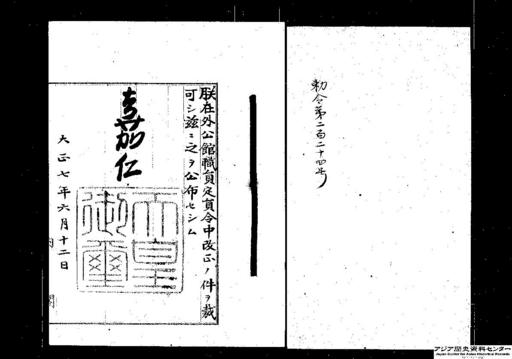 勅令第二百二十四号
朕在外公館職員定員令中改正ノ件ヲ裁
可シ茲ニ之ヲ公布セシム
嘉仁
天皇
御璽
大正七年六月十二日
内閣
アジア歴史資料センター
Japan Center for Asian Historical Records